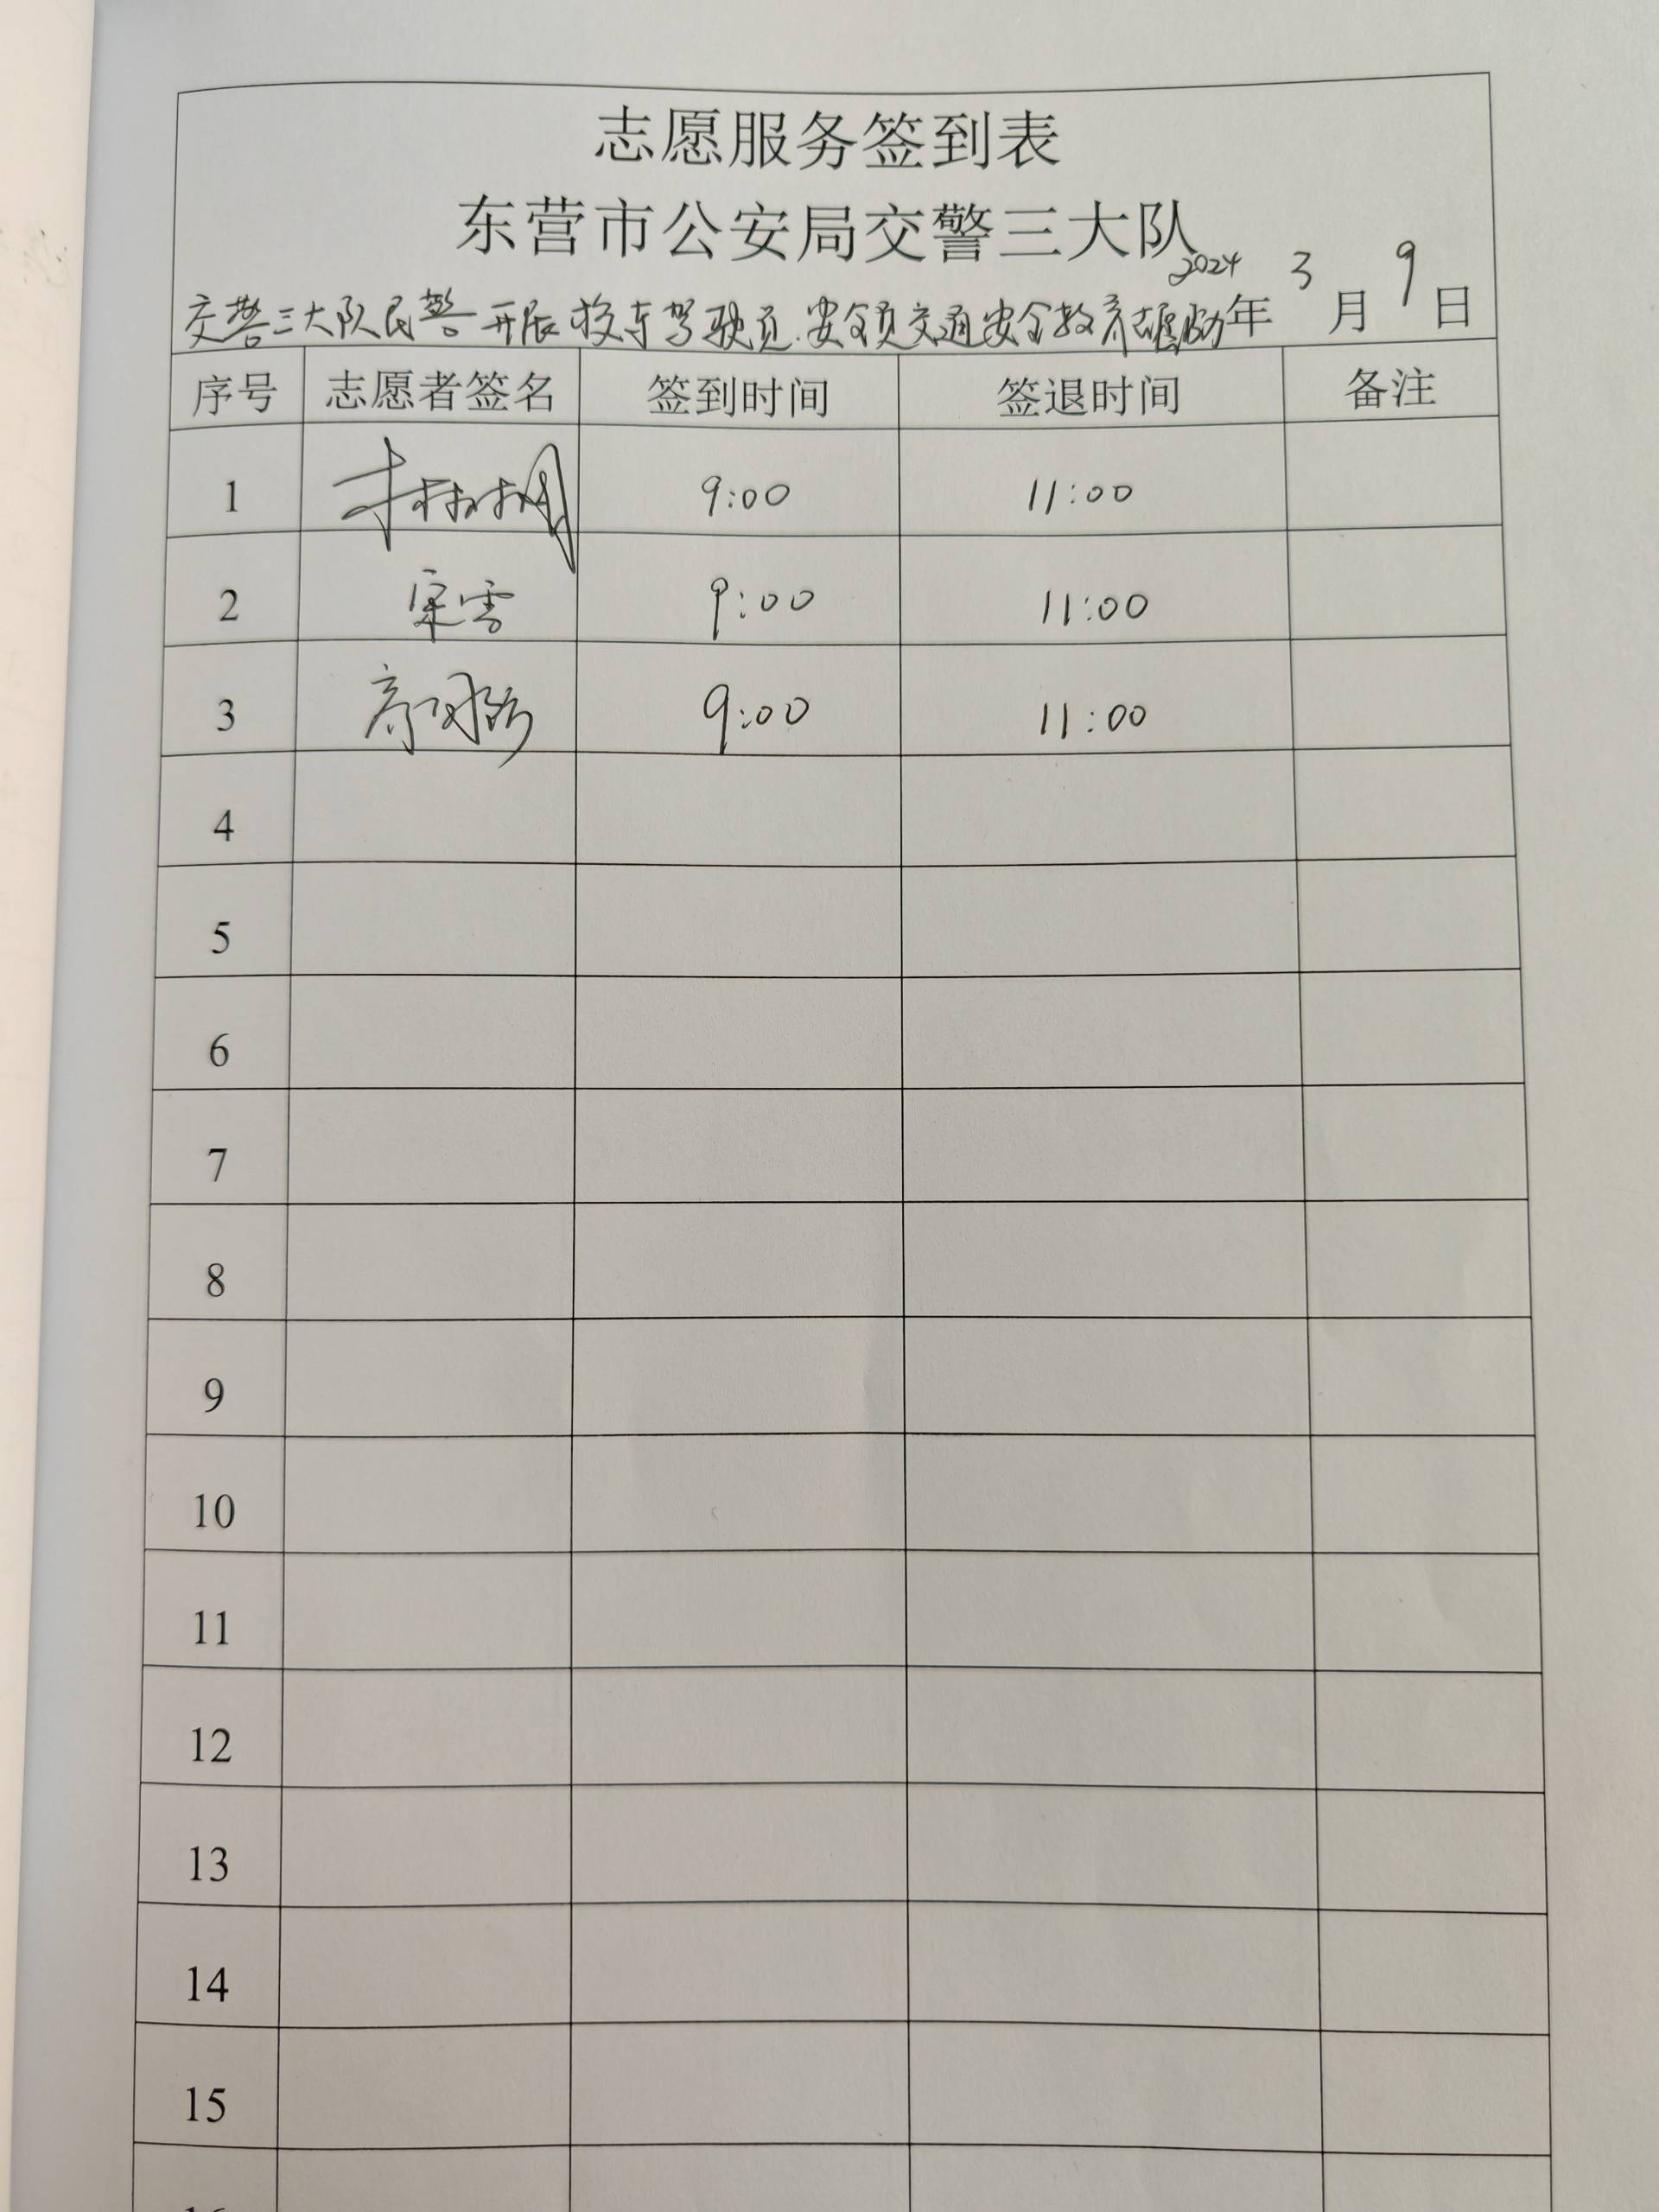 志愿服务签到表
东营市公安局交警三大队
交警三大队民警开展校车驾驶员、安全员交通安全教育活动 2024年3月9日
序号 志愿者签名 签到时间 签退时间 备注
1 9:00 11:00
2 宋雪 9:00 11:00
3 9:00 11:00
4
5
6
7
8
9
10
11
12
13
14
15